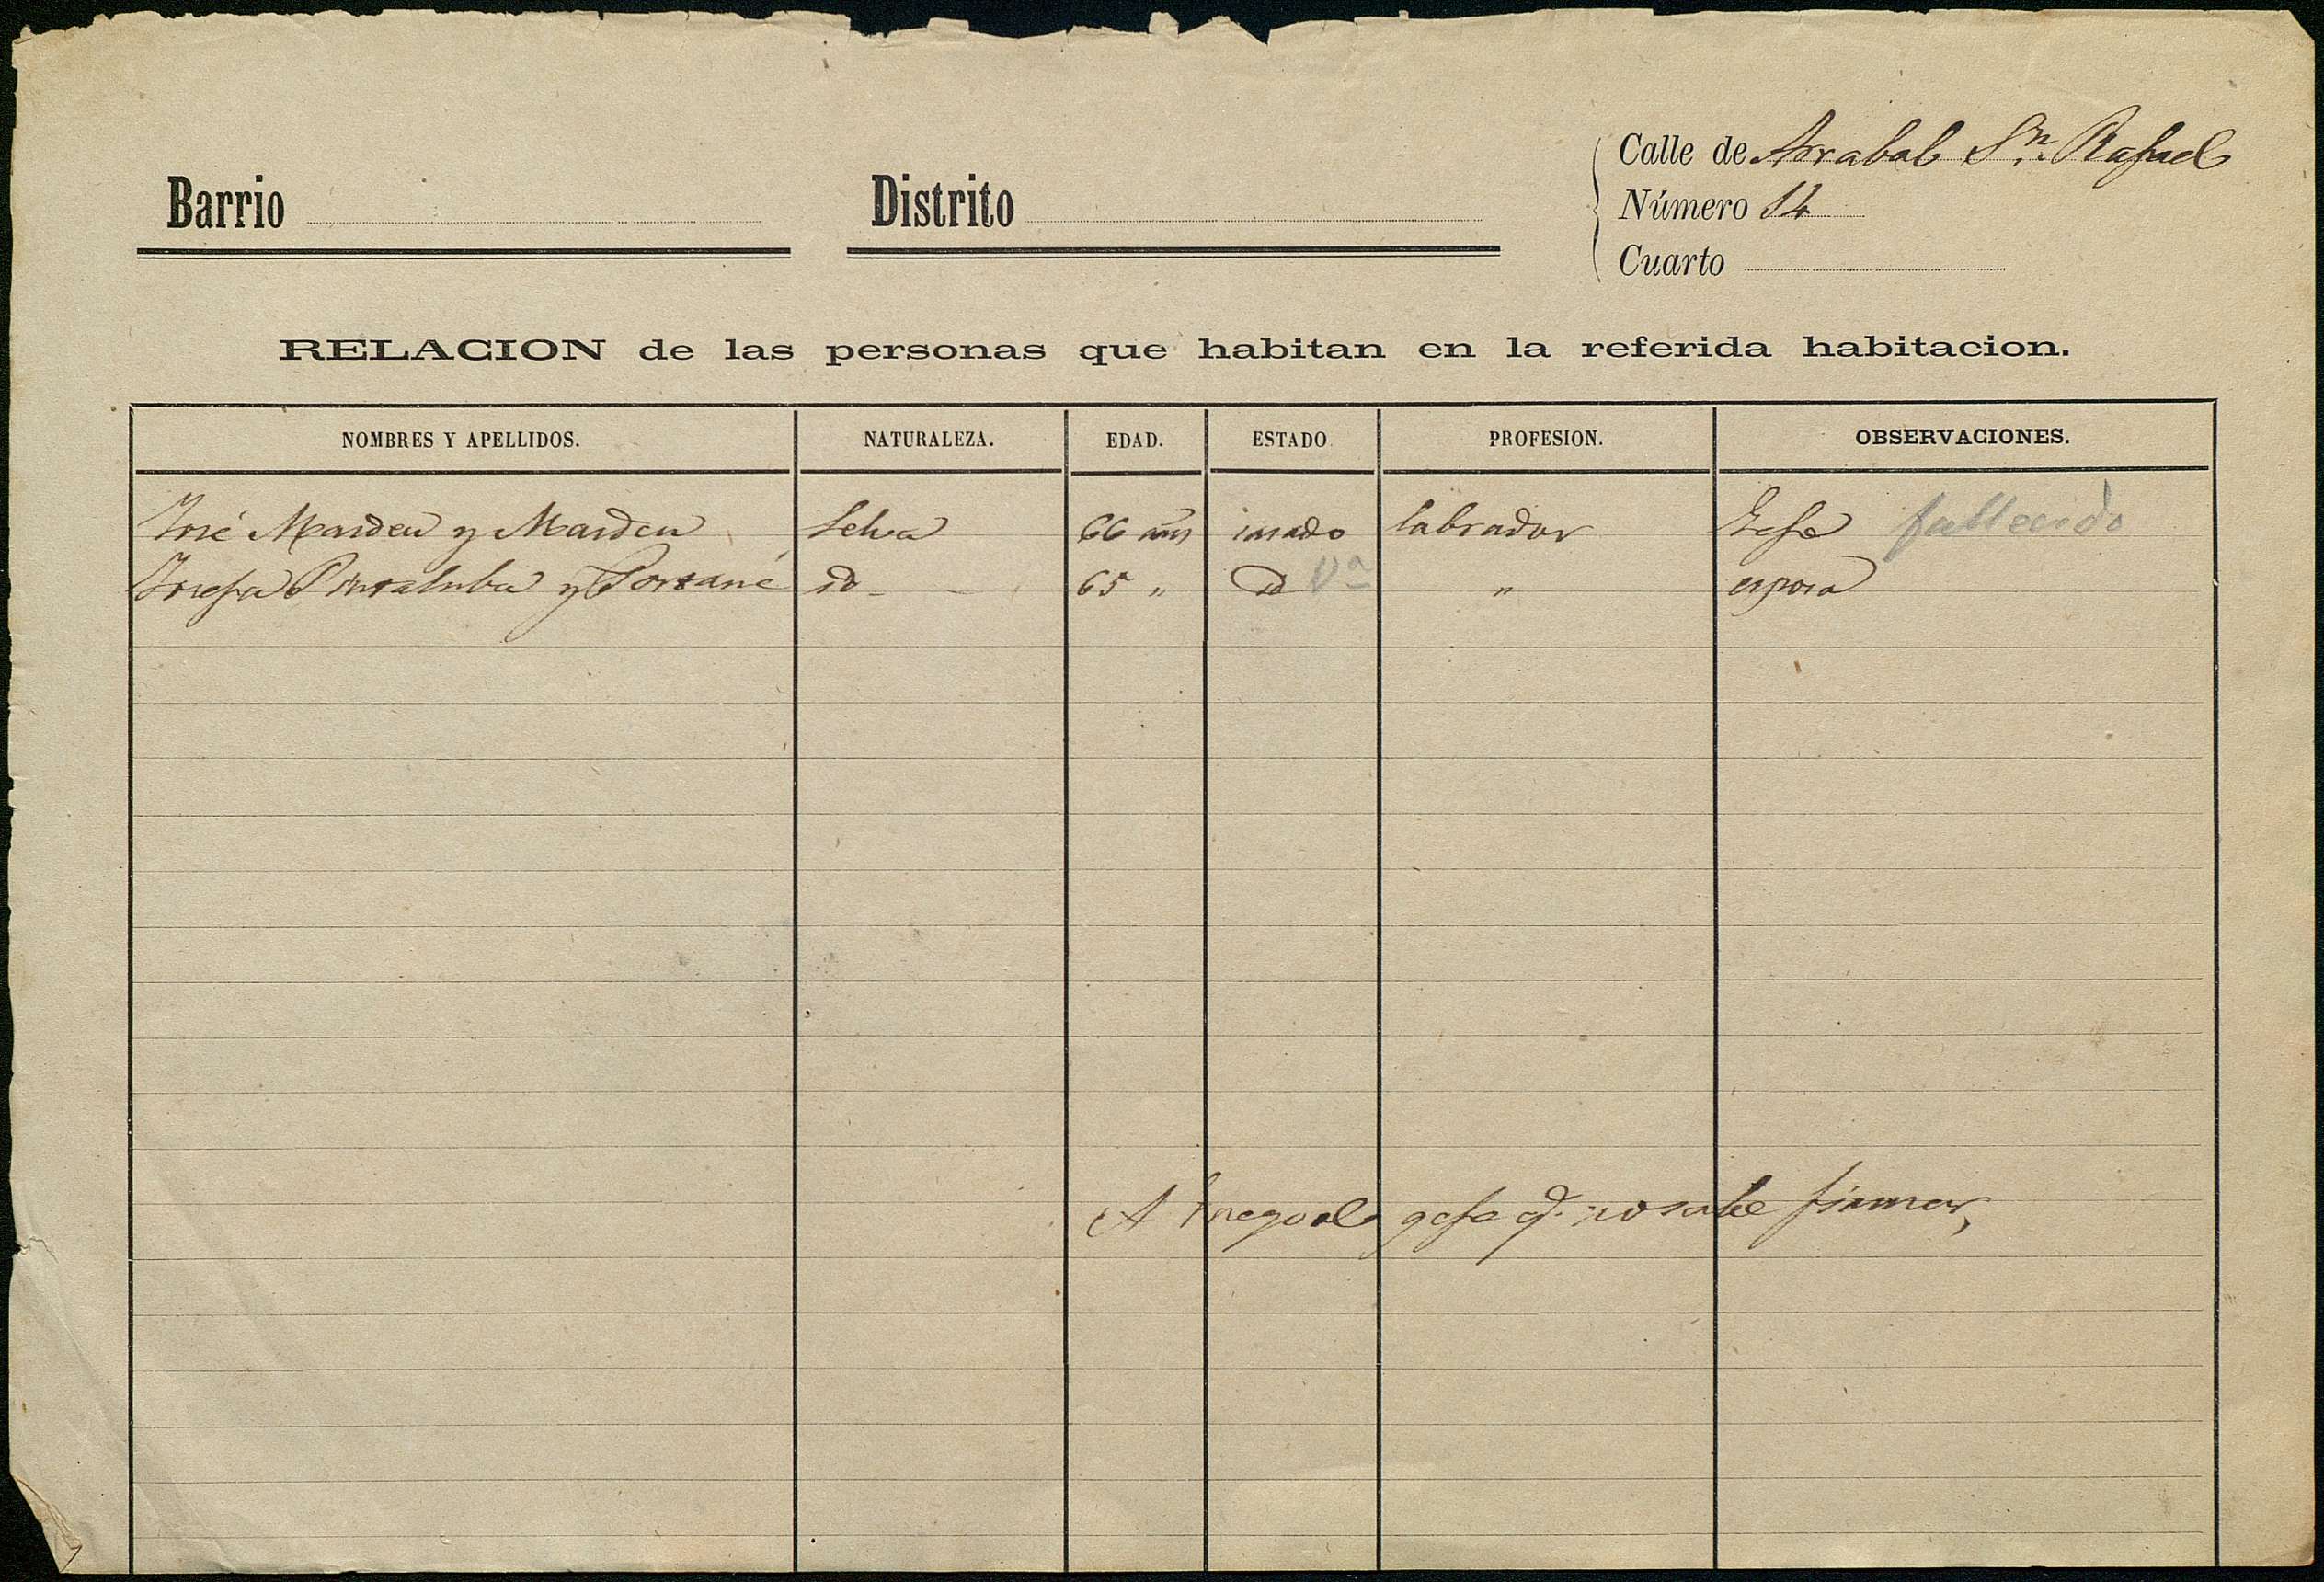 Barrio
Distrito
Calle de Arrabal Sn. Rafael
Número 14
Cuarto
RELACION de las personas que habitan en la referida habitacion.
NOMBRES Y APELLIDOS. NATURALEZA. EDAD. ESTADO. PROFESION. OBSERVACIONES.
José Masdeu y Masdeu Selva 66 años casado labrador Gefe fallecido
Josefa Pintaluba y id 65 " id Va " esposa
A gefe q. no sabe firmar,